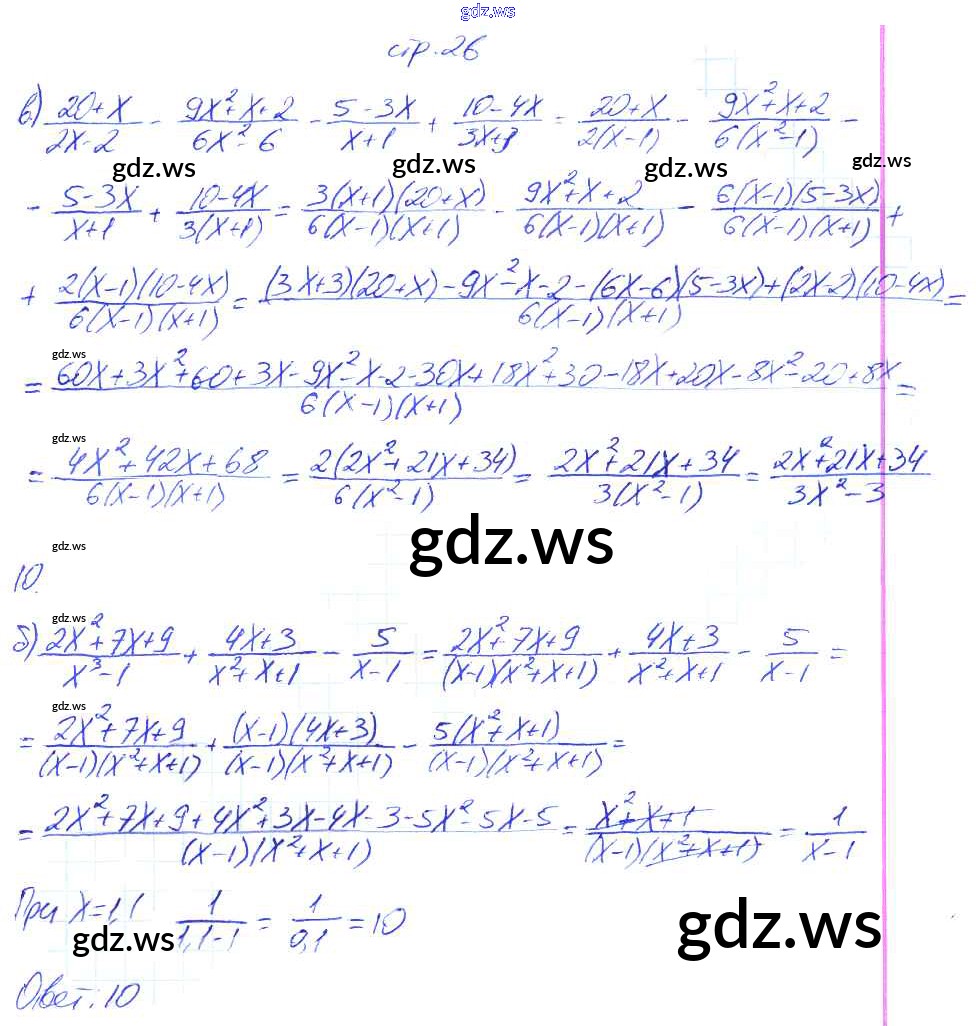 gdz.ws
стр.26
в) (20+x)/(2x-2) - (9x²+x+2)/(6x²-6) - (5-3x)/(x+1) + (10-4x)/(3x+3) = (20+x)/(2(x-1)) - (9x²+x+2)/(6(x²-1)) -
gdz.ws gdz.ws gdz.ws gdz.ws
- (5-3x)/(x+1) + (10-4x)/(3(x+1)) = (3(x+1)(20+x))/(6(x-1)(x+1)) - (9x²+x+2)/(6(x-1)(x+1)) - (6(x-1)(5-3x))/(6(x-1)(x+1)) +
+ (2(x-1)(10-4x))/(6(x-1)(x+1)) = ((3x+3)(20+x)-9x²-x-2-(6x-6)(5-3x)+(2x-2)(10-4x))/(6(x-1)(x+1)) =
gdz.ws
= (60x+3x²+60+3x-9x²-x-2-30x+18x²+30-18x+20x-8x²-20+8x)/(6(x-1)(x+1)) =
gdz.ws
= (4x²+42x+68)/(6(x-1)(x+1)) = (2(2x²+21x+34))/(6(x²-1)) = (2x²+21x+34)/(3(x²-1)) = (2x²+21x+34)/(3x²-3)
gdz.ws gdz.ws
10.
gdz.ws
б) (2x²+7x+9)/(x³-1) + (4x+3)/(x²+x+1) - 5/(x-1) = (2x²+7x+9)/((x-1)(x²+x+1)) + (4x+3)/(x²+x+1) - 5/(x-1) =
gdz.ws
= (2x²+7x+9)/((x-1)(x²+x+1)) + ((x-1)(4x+3))/((x-1)(x²+x+1)) - (5(x²+x+1))/((x-1)(x²+x+1)) =
= (2x²+7x+9+4x²+3x-4x-3-5x²-5x-5)/((x-1)(x²+x+1)) = (x²+x+1)/((x-1)(x²+x+1)) = 1/(x-1)
При x=1,1 1/(1,1-1) = 1/(0,1) = 10
gdz.ws gdz.ws
Ответ: 10